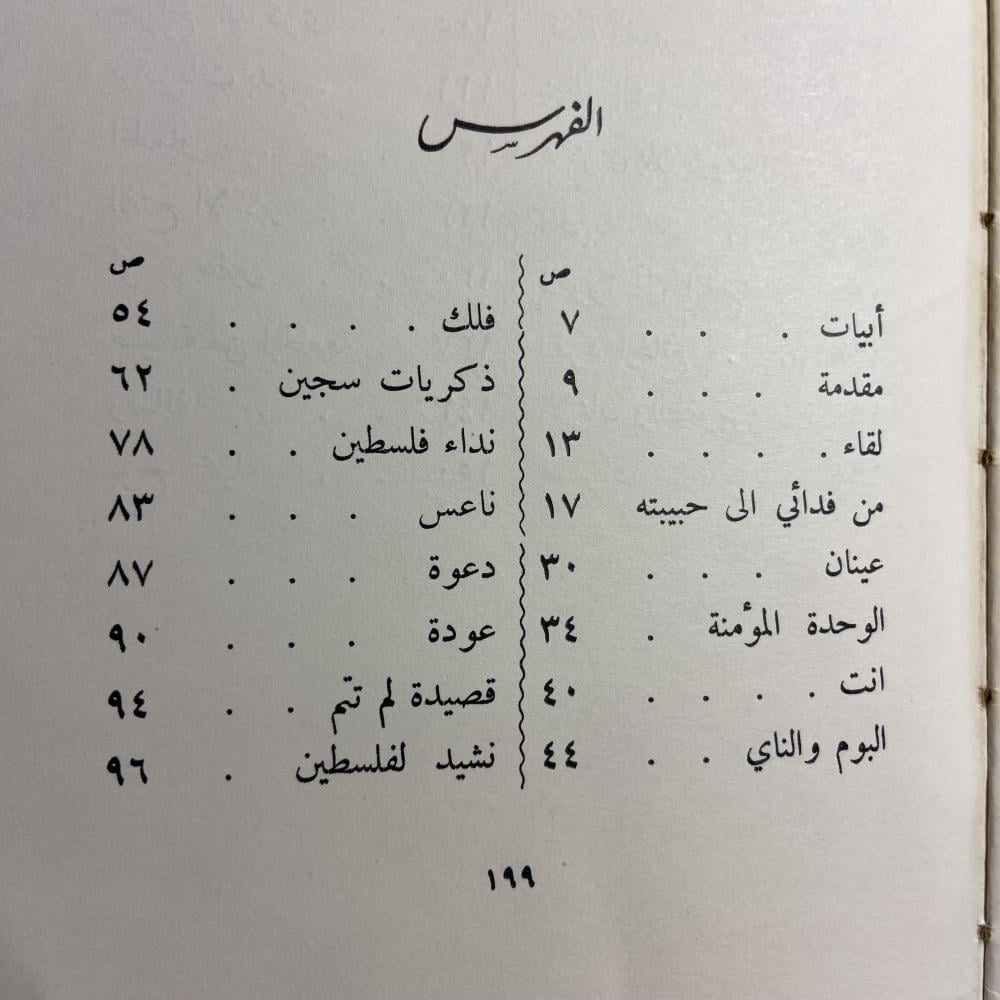 الفهرس
ص
أبيات . . . ٧
مقدمة . . . ٩
لقاء . . . . ١٣
من فدائي الى حبيبته ١٧
عينان . . . ٣٠
الوحدة المؤمنة . ٣٤
انت . . . . ٤٠
البوم والناي . . ٤٤
ص
فلك . . . . ٥٤
ذكريات سجين . ٦٢
نداء فلسطين . . ٧٨
ناعس . . . ٨٣
دعوة . . . ٨٧
عودة . . . ٩٠
قصيدة لم تتم . . ٩٤
نشيد لفلسطين . ٩٦
١٩٩